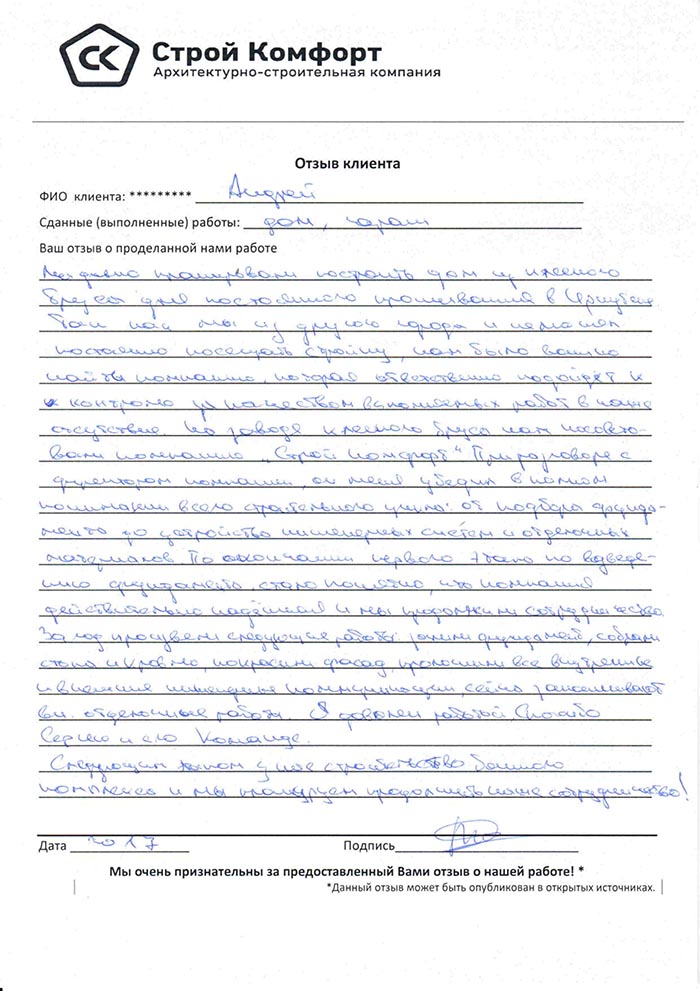 СК
Строй Комфорт
Архитектурно-строительная компания
Отзыв клиента
ФИО клиента: ********* Андрей
Сданные (выполненные) работы: дом, гараж
Ваш отзыв о проделанной нами работе
планировали построить дом из клееного
бруса для постоянного проживания в
Так как мы из другого города и не можем
постоянно посещать стройку, нам было важно
найти компанию, которая ответственно подойдёт к
к контролю за качеством выполняемых работ в наше
отсутствие. На заводе клееного бруса нам посовето-
вали компанию "Строй Комфорт" При разговоре с
директором компании, он меня убедил в полном
понимании всего строительного цикла: от подбора фунда-
мента до устройства инженерных систем и отделочных
материалов. По окончании первого этапа по возведе-
нию фундамента, стало понятно, что компания
действительно надёжная и мы продолжили сотрудничество.
За год произвели следующие работы: залили фундамент, собрали
стены и кровлю, покрасили фасад, проложили все внутренние
и внешние инженерные коммуникации, сейчас заканчивают
вн. отделочные работы. Я доволен работой. Спасибо
Сергею и его Команде.
Следующим этапом у нас строительство банного
комплекса и мы планируем продолжить наше сотрудничество!
Дата 2017 Подпись
Мы очень признательны за предоставленный Вами отзыв о нашей работе! *
*Данный отзыв может быть опубликован в открытых источниках.